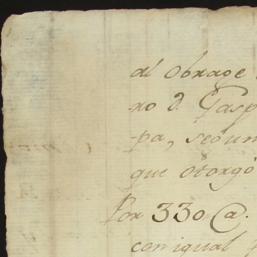 al obrage
no d. Gasp
pa, segun
que otorgó
Por 330 @.
con igual